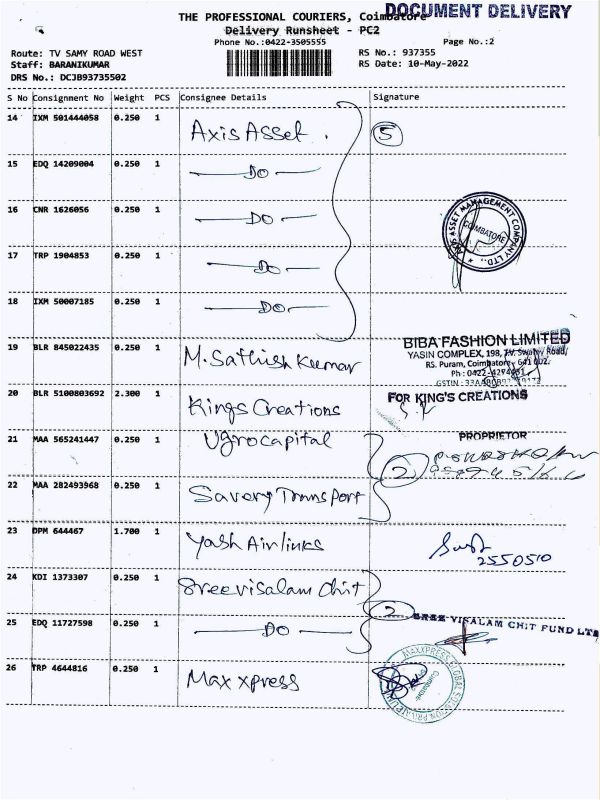 DOCUMENT DELIVERY
THE PROFESSIONAL COURIERS, Coimbatore
Delivery Runsheet - PC2
Phone No.:0422-3505555
Page No.:2
Route: TV SAMY ROAD WEST
RS No.: 937355
Staff: BARANIKUMAR
RS Date: 10-May-2022
DRS No.: DCJB93735502
S No Consignment No Weight PCS Consignee Details Signature
14 IXM 501444058 0.250 1 Axis Asset . 5
15 EDQ 14209004 0.250 1 — DO —
16 CNR 1626056 0.250 1 — DO —
AXIS ASSET MANAGEMENT COMPANY LTD., COIMBATORE
17 TRP 1904853 0.250 1 — DO —
18 IXM 50007185 0.250 1 — DO —
19 BLR 845022435 0.250 1 M. Sathish Kumar
BIBA FASHION LIMITED
YASIN COMPLEX, 198, T.V. Swamy Road,
RS. Puram, Coimbatore - 641 002.
Ph : 0422-4274451
GSTIN : 33AA
20 BLR 5100803692 2.300 1 Kings Creations
FOR KING'S CREATIONS
PROPRIETOR
21 MAA 565241447 0.250 1 Ugrocapital 2
22 MAA 282493968 0.250 1 Savery Transport
23 DPM 644467 1.700 1 Yash Airlinks
2550510
24 KDI 1373307 0.250 1 Sreevisalam Chit 2
SREE VISALAM CHIT FUND LTD
25 EDQ 11727598 0.250 1 — DO —
26 TRP 4644816 0.250 1 Max xpress
MAXXPRESS GLOBAL Coimbatore